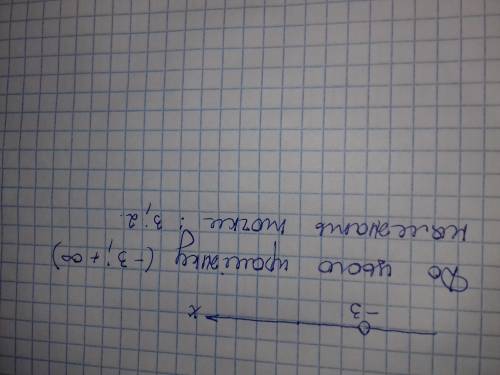 -3 x
До цього проміжку (-3; +∞)
належать точки: 3; 2.